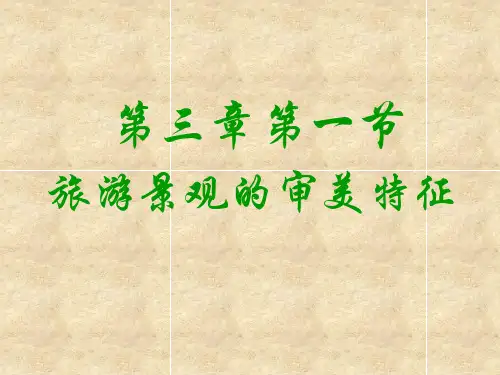 第三章第一节
旅游景观的审美特征